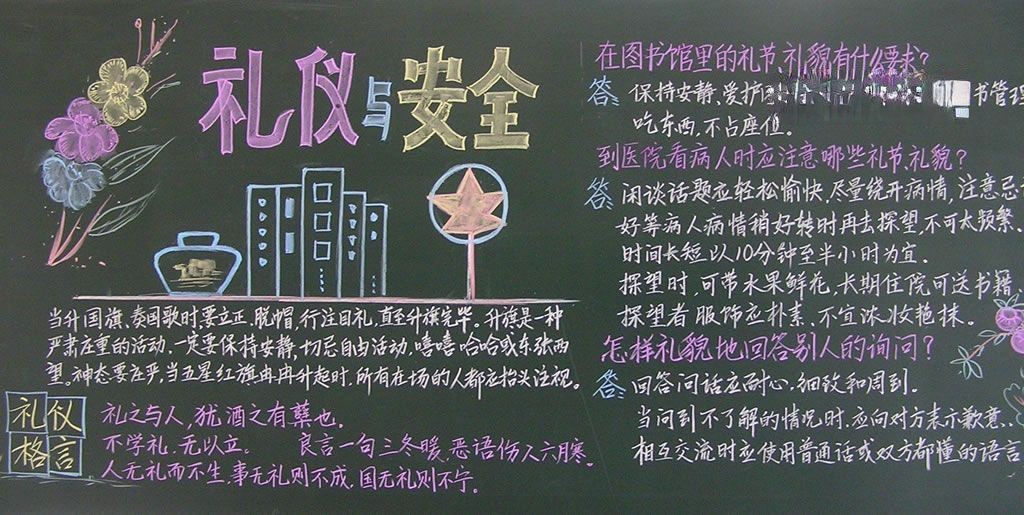 礼仪与安全
当升国旗、奏国歌时要立正,脱帽,行注目礼,直至升旗完毕。升旗是一种
严肃庄重的活动,一定要保持安静,切忌自由活动,嘻嘻哈哈或东张西
望。神态要庄严,当五星红旗冉冉升起时,所有在场的人都应抬头注视。
礼仪
格言
礼之与人,犹酒之有蘖也。
不学礼,无以立。 良言一句三冬暖,恶语伤人六月寒。
人无礼而不生,事无礼则不成,国无礼则不宁。
在图书馆里的礼节、礼貌有什么要求?
答: 保持安静、爱护 书管理
吃东西,不占座位。
到医院看病人时应注意哪些礼节、礼貌?
答: 闲谈话题应轻松愉快,尽量绕开病情,注意忌
好等病人病情稍好转时再去探望,不可太频繁。
时间长短以10分钟至半小时为宜。
探望时,可带水果鲜花,长期住院可送书籍、
探望者服饰应朴素,不宜浓妆艳抹。
怎样礼貌地回答别人的询问?
答: 回答问话应耐心、细致和周到。
当问到不了解的情况时,应向对方表示歉意、
相互交流时应使用普通话或双方都懂的语言